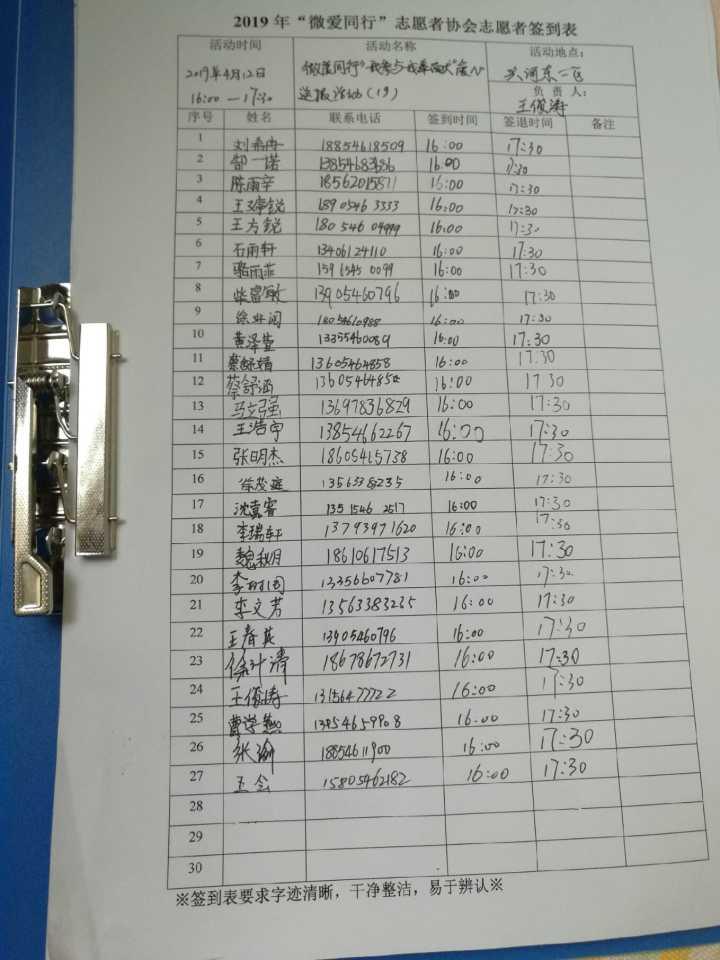 2019 年“微爱同行”志愿者协会志愿者签到表
活动时间 活动名称 活动地点：
2019年4月12日 微爱同行“我参与我奉献”
16:00 —17:30 活动
负 责 人：
王俊涛
序号 姓名 联系电话 签到时间 签退时间 备注
1 18854618509 16:00 17:30
2 一诺 16:00 17:30
3 陈雨辛 16:00 17:30
4 王 锐 189 0546 3333 16:00 17:30
5 王方锐 180 546 16:00 17:30
6 石雨轩 13406124110 16:00 17:30
7 骆雨菲 159 1545 0099 16:00 17:30
8 13905460796 16:00 17:30
9 16:00 17:30
10 黄泽萱 13355460089 16:00 17:30
11 13605464858 16:00 17:30
12 蔡舒涵 16:00 17 30
13 马文强 13697836829 16:00 17:30
14 王浩宇 13854662267 16:00 17:30
15 张明杰 18605465738 16:00 17:30
16 16:00 17:30
17 沈嘉睿 135 1546 2517 16:00 17:30
18 李瑞轩 13793971620 16:00 17:30
19 魏秋月 18610617513 16:00 17:30
20 13356607781 16:00 17:30
21 李文芳 13563383235 16:00 17:30
22 王春英 13905460796 16:00 17:30
23 徐叶清 18678672731 16:00 17:30
24 王俊涛 16:00 17:30
25 16:00 17:30
26 张瑜 18854611900 16:00 17:30
27 王会 15805462182 16:00 17:30
28
29
30
※签到表要求字迹清晰，干净整洁，易于辨认※